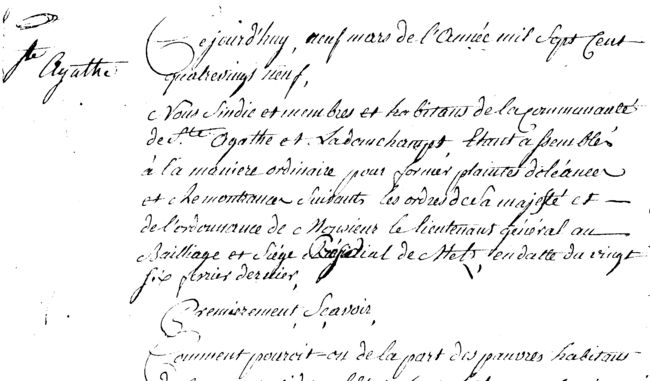 Ste
Agathe
Cejourd'huy, neuf mars de l'Année mil Sept Cent
quatrevingt neuf,
Nous Sindic et membres et habitans de la communauté
de Ste Agathe et Ladonchampt Etant assemblés
à la maniere ordinaire pour former plaintes doléances
et Remontrances suivants les ordres de sa majesté et
de l'ordonnance de Monsieur le lieutenant général au
Bailliage et Siége Présidial de Metz, en datte du vingt
six fevrier dernier,
Premierement Sçavoir,
Comment pouroit-on de la part des pauvres habitans